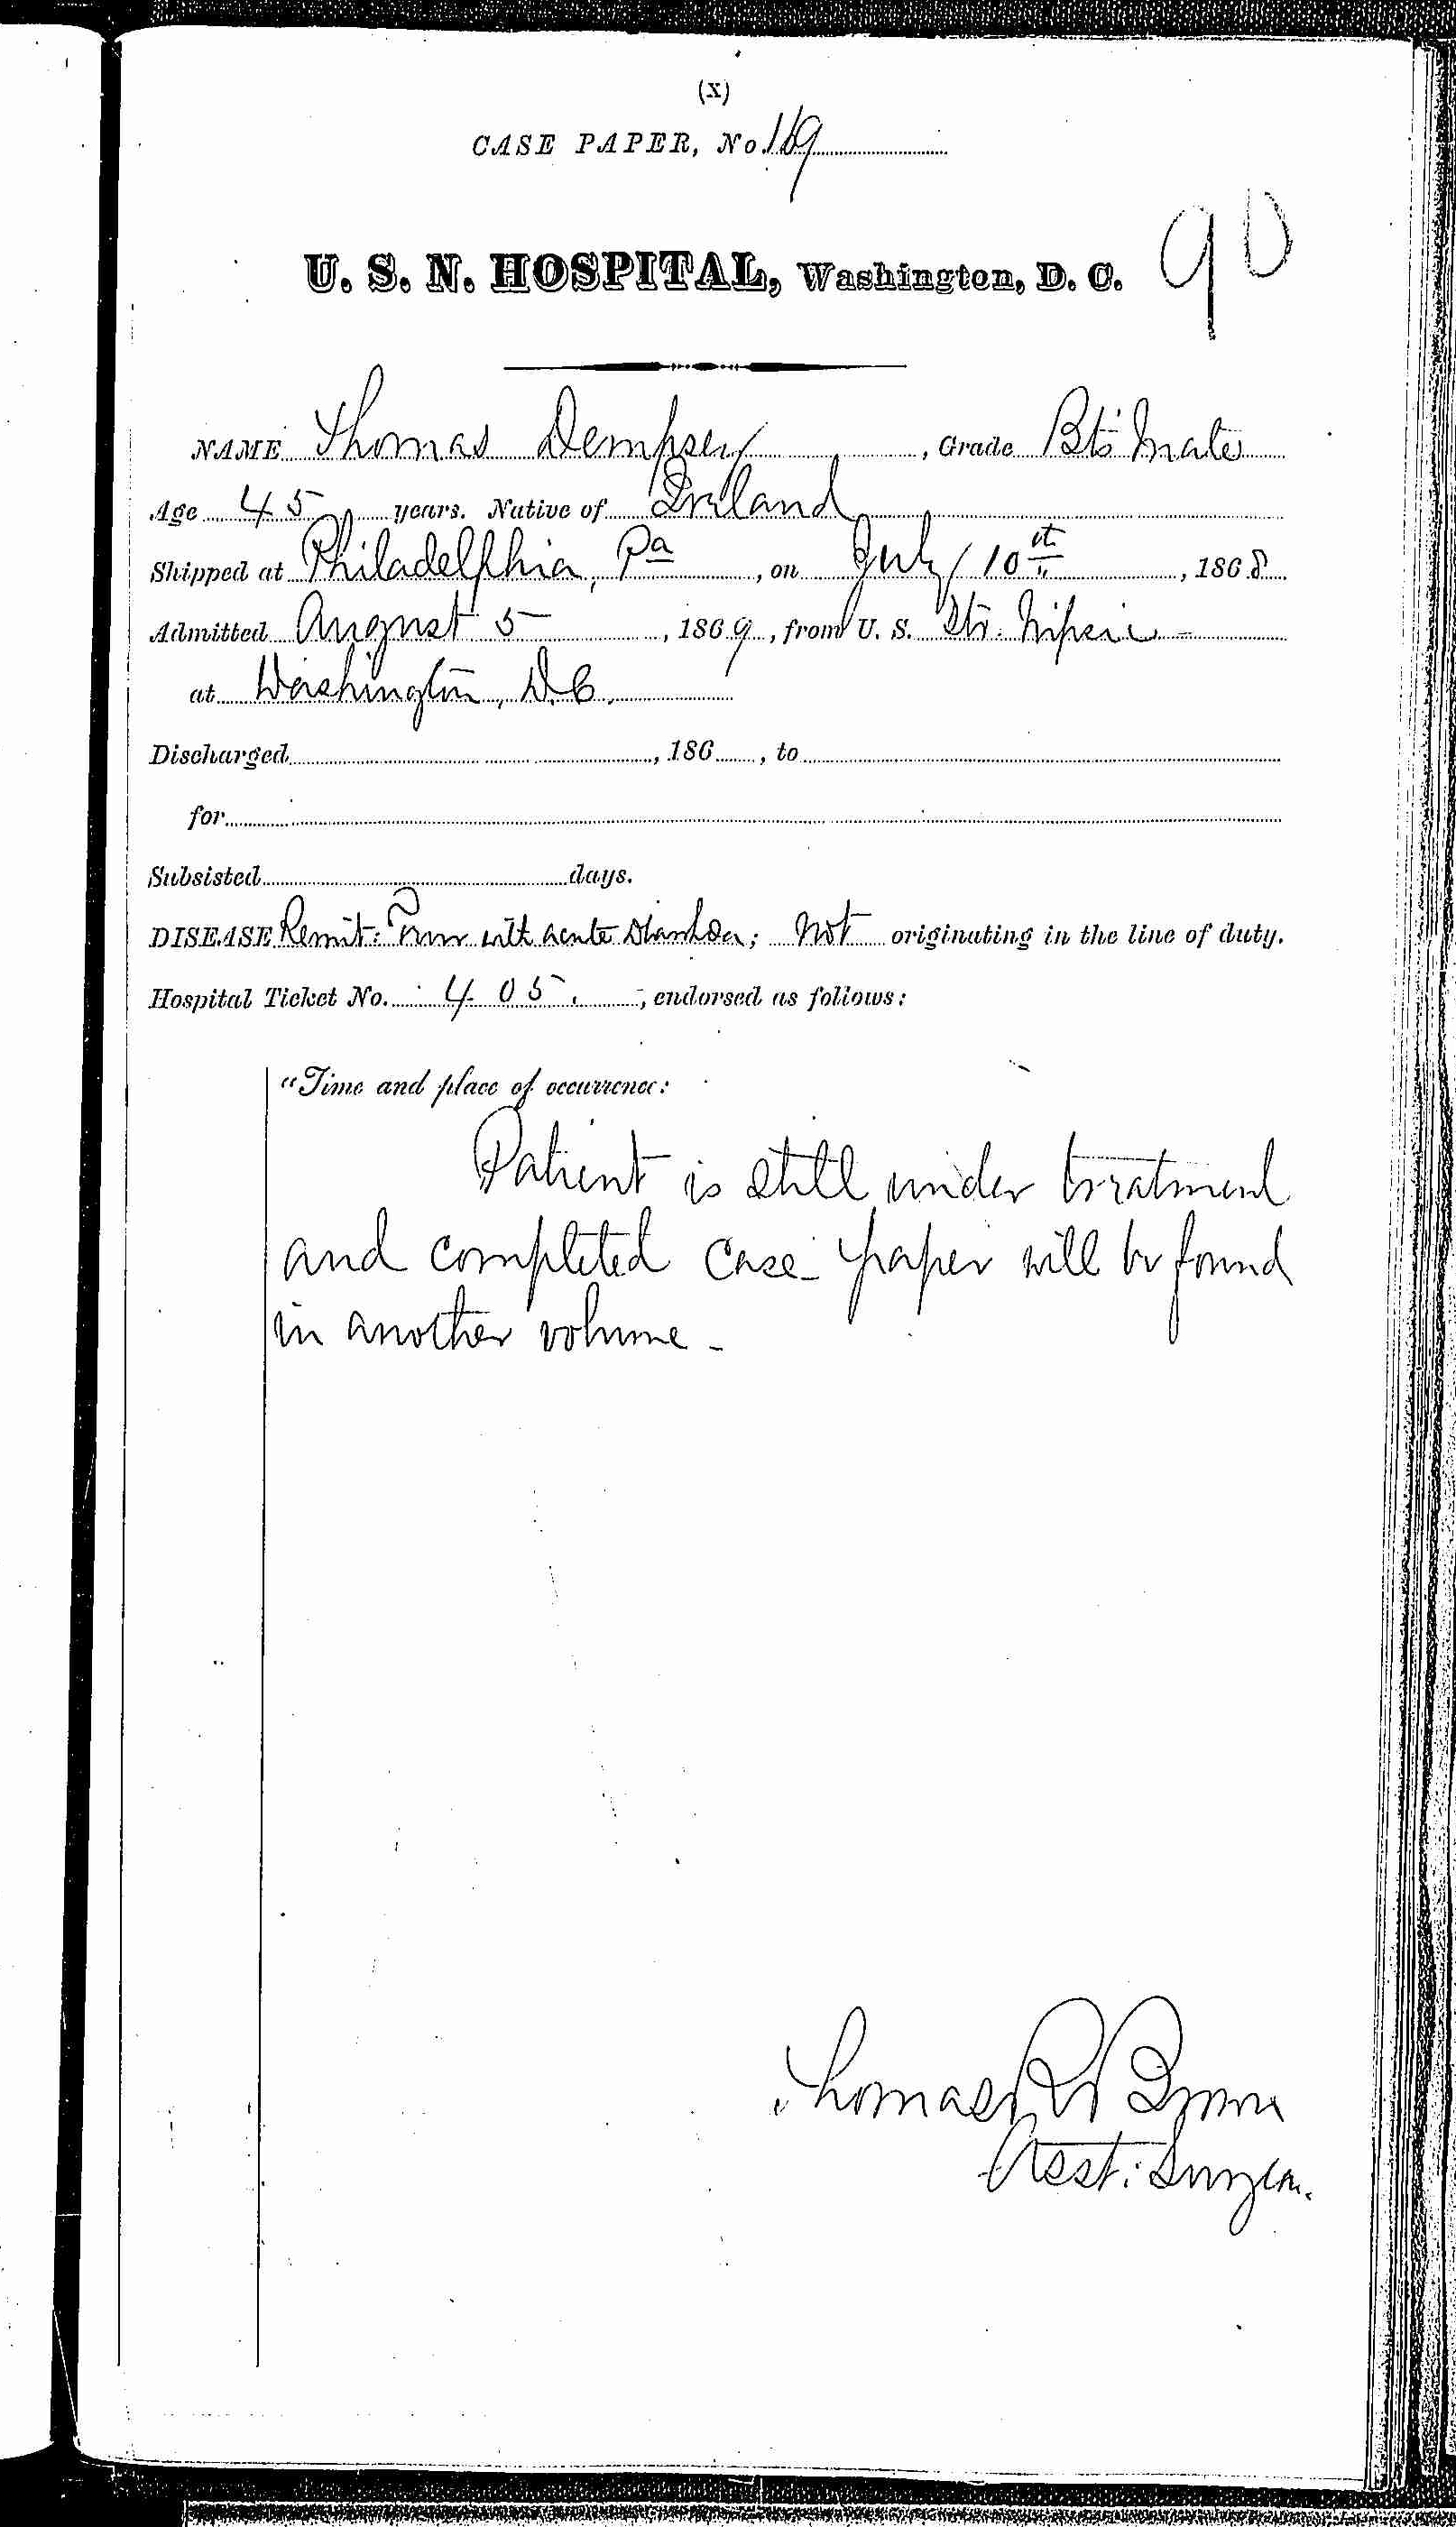 (X)
CASE PAPER, No. 169
90
U. S. N. HOSPITAL, Washington, D. C.
NAME Thomas Dempsey, Grade Bts Mate
Age 45 years. Native of Ireland
Shipped at Philadelphia, Pa, on July 10th, 1868
Admitted August 5, 1869, from U. S. Str. Nipsic -
at Washington, D.C.
Discharged, 186 , to
for
Subsisted days.
DISEASE Remit: Fever with acute Diarrhoea; Not originating in the line of duty.
Hospital Ticket No. 405., endorsed as follows:
"Time and place of occurrence:
Patient is still under treatment
and completed case-paper will be found
in another volume -
Thomas R Brown
Asst: Surgeon.